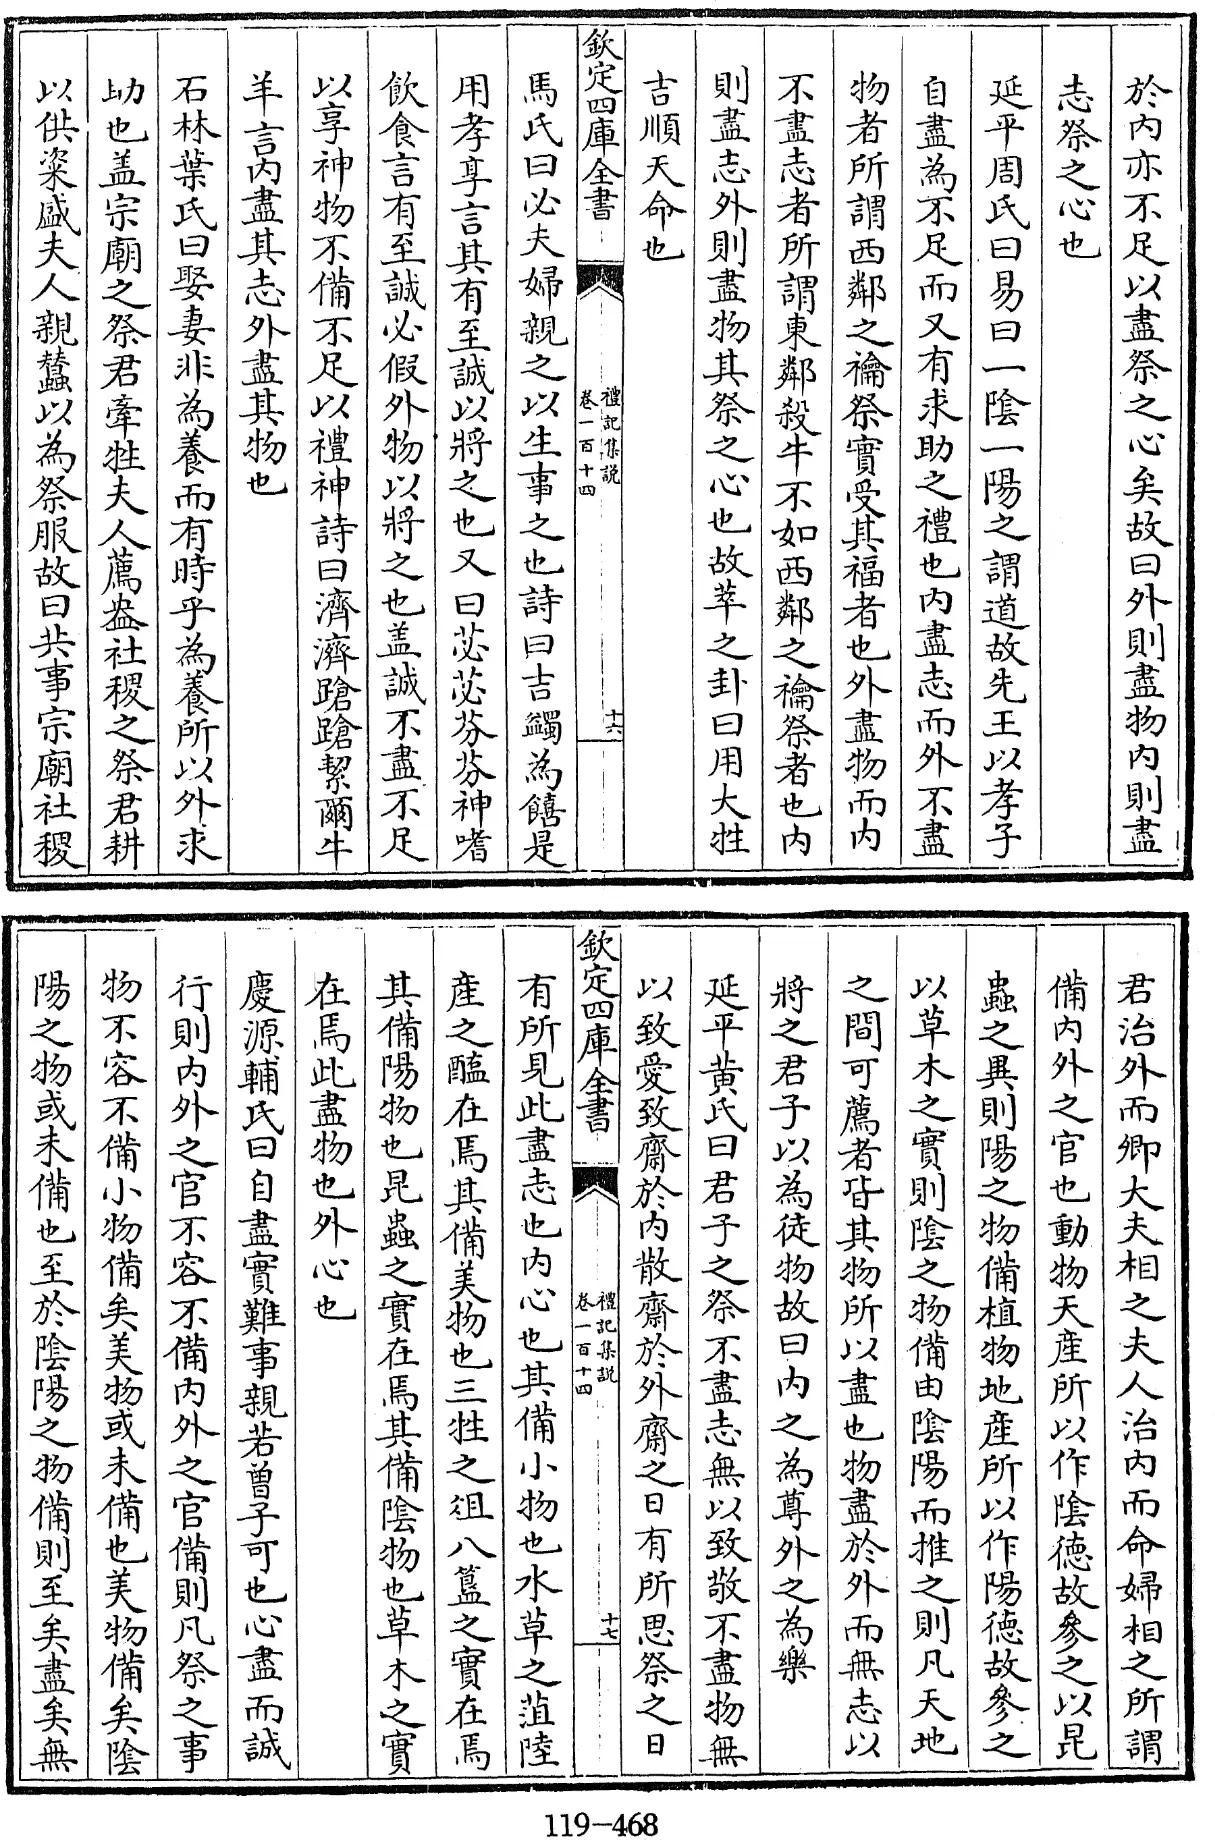 於内亦不足以盡祭之心矣故曰外則盡物内則盡
志祭之心也
延平周氏曰易曰一陰一陽之謂道故先王以孝子
自盡為不足而又有求助之禮也内盡志而外不盡
物者所謂西鄰之禴祭實受其福者也外盡物而内
不盡志者所謂東鄰殺牛不如西鄰之禴祭者也内
則盡志外則盡物其祭之心也故萃之卦曰用大牲
吉順天命也
欽定四庫全書
禮記集説
卷一百十四
十六
馬氏曰必夫婦親之以生事之也詩曰吉蠲為饎是
用孝享言其有至誠以將之也又曰苾苾芬芬神嗜
飲食言有至誠必假外物以將之也盖誠不盡不足
以享神物不備不足以禮神詩曰濟濟蹌蹌絜爾牛
羊言内盡其志外盡其物也
石林葉氏曰娶妻非為養而有時乎為養所以外求
助也盖宗廟之祭君牽牲夫人薦盎社稷之祭君耕
以供粢盛夫人親蠶以為祭服故曰共事宗廟社稷
君治外而卿大夫相之夫人治内而命婦相之所謂
備内外之官也動物天産所以作陰德故參之以昆
蟲之異則陽之物備植物地産所以作陽德故參之
以草木之實則陰之物備由陰陽而推之則凡天地
之間可薦者皆其物所以盡也物盡於外而無志以
將之君子以為徒物故曰内之為尊外之為樂
延平黄氏曰君子之祭不盡志無以致敬不盡物無
以致愛致齋於内散齋於外齋之日有所思祭之日
欽定四庫全書
禮記集説
卷一百十四
十七
有所見此盡志也内心也其備小物也水草之菹陸
産之醢在焉其備美物也三牲之俎八簋之實在焉
其備陽物也昆蟲之實在焉其備陰物也草木之實
在焉此盡物也外心也
慶源輔氏曰自盡實難事親若曾子可也心盡而誠
行則内外之官不容不備内外之官備則凡祭之事
物不容不備小物備矣美物或未備也美物備矣陰
陽之物或未備也至於陰陽之物備則至矣盡矣無
119-468